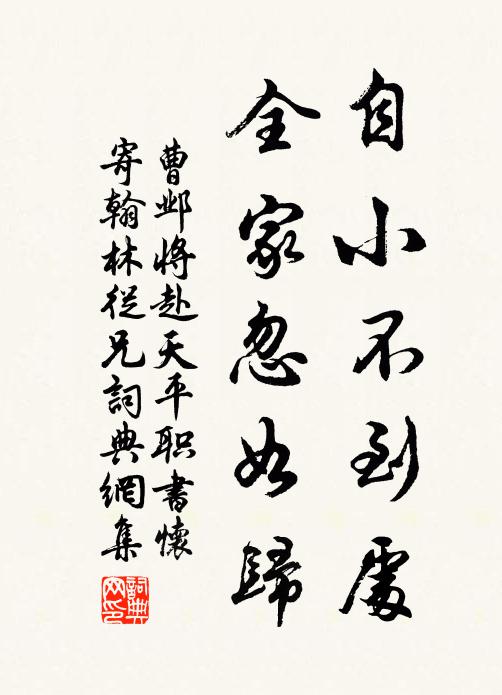 自小不到處
全家忽如歸
曹邺將赴天平职書懷
寄翰林從兄詞典網集
詞典網印